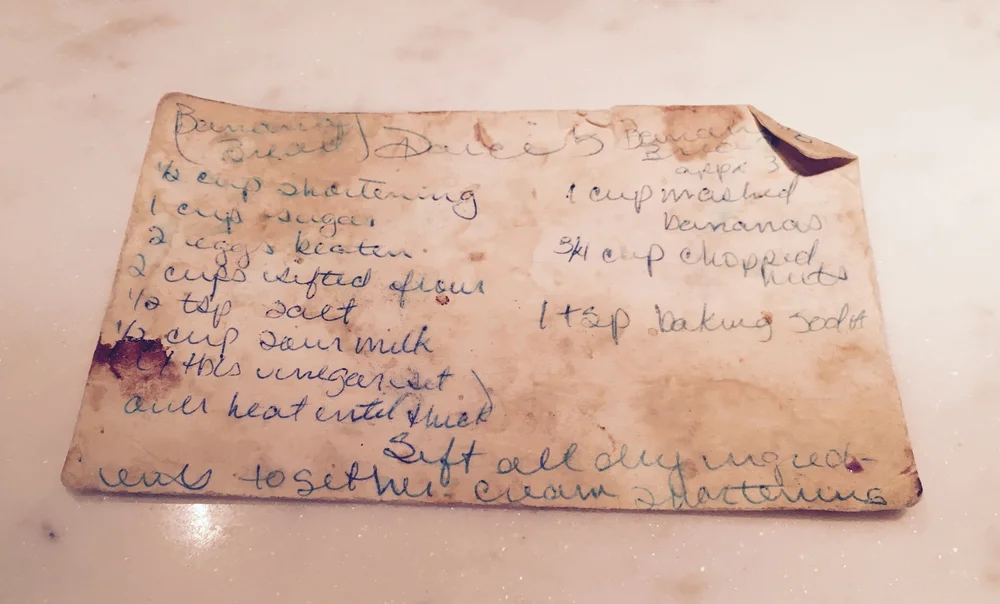 (Banana Bread) Darci's Banana Bread
½ cup shortening
1 cup sugar
2 eggs beaten
2 cups sifted flour
½ tsp salt
½ cup sour milk
tbls vinegar set
over heat until thick)
appx 3
1 cup mashed
bananas
3/4 cup chopped
nuts
1 tsp baking soda
Sift all dry ingred-
ients together cream shortening